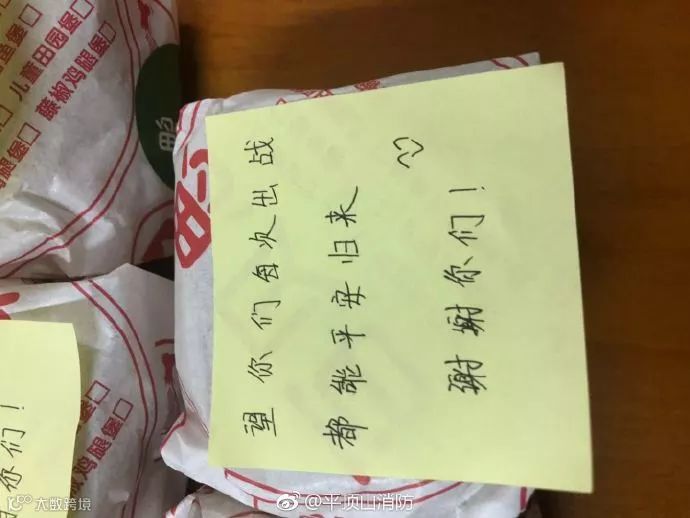 望你们每次出战
都能平安归来
谢谢你们!
你们!
儿童田园堡□
藤椒鸡腿堡□
鸡腿堡□
@平顶山消防
大数跨境